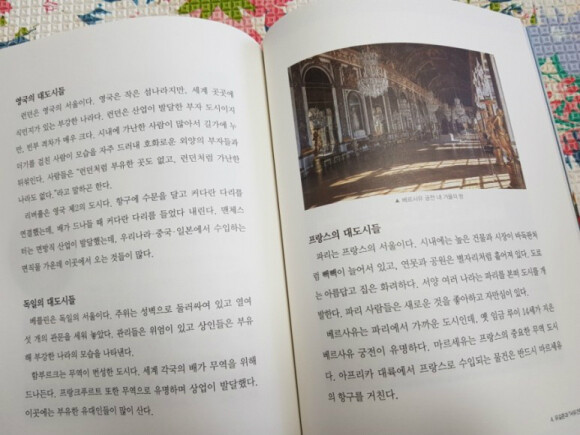 영국의 대도시들
런던은 영국의 서울이다. 영국은 작은 섬나라지만, 세계 곳곳에
식민지가 있는 부강한 나라다. 런던은 산업이 발달한 부자 도시이지
만, 빈부 격차가 매우 크다. 시내에 가난한 사람이 많아서 길가에 누
더기를 걸친 사람이 모습을 자주 드러내 호화로운 외양의 부자들과
뒤섞인다. 사람들은 “런던처럼 부유한 곳도 없고, 런던처럼 가난한
나라도 없다.”라고 말하곤 한다.
리버풀은 영국 제2의 도시다. 항구에 수문을 달고 커다란 다리를
연결했는데, 배가 드나들 때 커다란 다리를 들었다 내린다. 맨체스
터는 면방적 산업이 발달했는데, 우리나라·중국·일본에서 수입하는
면직물 가운데 이곳에서 오는 것들이 많다.
독일의 대도시들
베를린은 독일의 서울이다. 주위는 성벽으로 둘러싸여 있고 열여
섯 개의 관문을 세워 놓았다. 관리들은 위엄이 있고 상인들은 부유
해 부강한 나라의 모습을 나타낸다.
함부르크는 무역이 번성한 도시다. 세계 각국의 배가 무역을 위해
드나든다. 프랑크푸르트 또한 무역으로 유명하며 상업이 발달했다.
이곳에는 부유한 유대인들이 많이 산다.
▲ 베르사유 궁전 내 거울의 방
프랑스의 대도시들
파리는 프랑스의 서울이다. 시내에는 높은 건물과 시장이 바둑판처
럼 빽빽이 늘어서 있고, 연못과 공원은 별자리처럼 흩어져 있다. 도로
는 아름답고 집은 화려하다. 서양 여러 나라는 파리를 본떠 도시를 개
발한다. 파리 사람들은 새로운 것을 좋아하고 자만심이 있다.
베르사유는 파리에서 가까운 도시인데, 옛 임금 루이 14세가 지은
베르사유 궁전이 유명하다. 마르세유는 프랑스의 중요한 무역 도시
다. 아프리카 대륙에서 프랑스로 수입되는 물건은 반드시 마르세유
의 항구를 거친다.